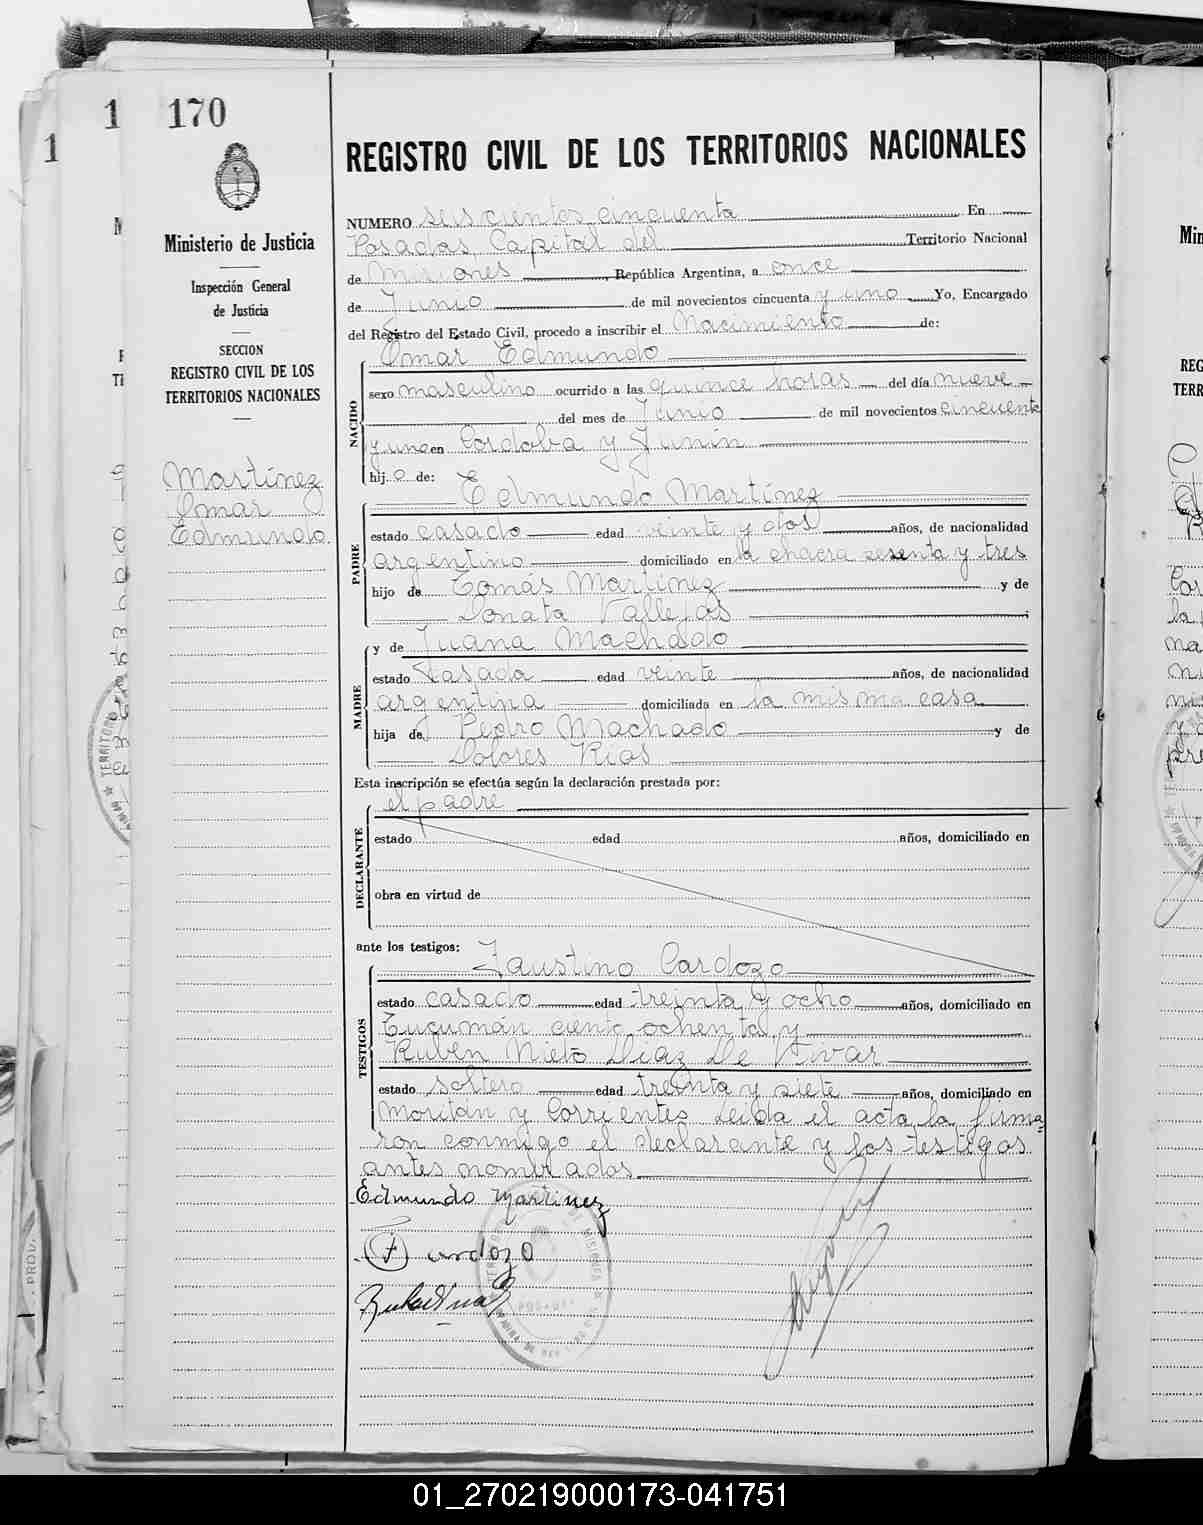 170
Ministerio de Justicia
Inspección General
de Justicia
SECCION
REGISTRO CIVIL DE LOS
TERRITORIOS NACIONALES
Martínez
Omar
Edmundo
REGISTRO CIVIL DE LOS TERRITORIOS NACIONALES
NUMERO seiscientos cincuenta En
Posadas, Capital del Territorio Nacional
de Misiones, República Argentina, a once
de Junio de mil novecientos cincuenta y uno Yo, Encargado
del Registro del Estado Civil, procedo a inscribir el Nacimiento de:
Omar Edmundo
NACIDO
sexo masculino ocurrido a las quince horas del día nueve
del mes de Junio de mil novecientos cincuenta
y uno en Cordoba y Junín
hijo de:
Edmundo Martínez
PADRE
estado casado edad veinte y dos años, de nacionalidad
argentino domiciliado en la chacra sesenta y tres
hijo de Tomás Martínez y de
Donata Vallejos
y de Juana Machado
MADRE
estado casada edad veinte años, de nacionalidad
argentina domiciliada en la misma casa
hija de Pedro Machado y de
Dolores Rios
Esta inscripción se efectúa según la declaración prestada por:
el padre
DECLARANTE
estado edad años, domiciliado en
obra en virtud de
ante los testigos:
Faustino Cardozo
TESTIGOS
estado casado edad treinta y ocho años, domiciliado en
Tucumán ciento ochenta y
Ruben Nieto Diaz De Vivar
estado soltero edad treinta y siete años, domiciliado en
Moritán y Corrientes Leida el acta la firma=
ron conmigo el declarante y los testigos
antes nombrados
Edmundo Martinez
F Cardozo
Min
REG
TERR
01_270219000173-041751